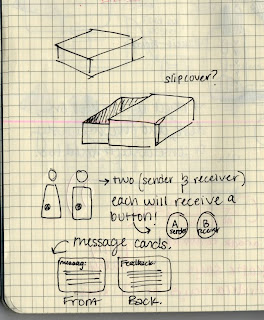 slipcover?
→ two (sender & receiver)
each will receive a
button!
A
sender
B
receiver
message cards.
message:
Feedback:
Front
Back.